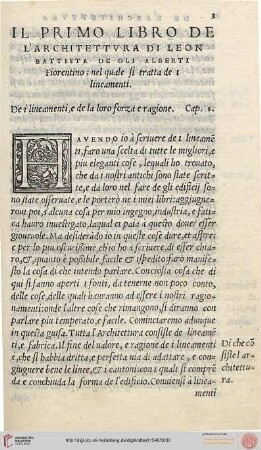 3
IL PRIMO LIBRO DE
L'ARCHITETTVRA DI LEON
BATTISTA DE GLI ALBERTI
Fiorentino; nel quale si tratta de i
lineamenti.
De i lineamenti, e de la loro forza e ragione. Cap. 1.
HAVENDO io à scriuere de i lineamẽ
ti, faro una scelta di tutte le migliori, e
piu eleganti cose, lequali ho trouato,
che da i nostri antichi sono state scrit-
te, e da loro nel fare de gli edificij so-
no state osseruate, e le porterò ne i miei libri: aggiugne-
rouui poi, s'alcuna cosa per mio ingegno, industria, e fati-
ca hauro inuestigato, laqual ci paia à questo douer esser
gioueuole. Ma desiderãdo io in queste cose dure, et aspre,
e per lo piu oscurissime, ch'io ho à scriuere, di esser chia-
ro, &, quanto è possibile facile & espedito faro manife-
sto la cosa di che intendo parlare. Conciosia cosa che di
qui si fanno aperti i fonti, da tenerne non poco conto,
delle cose, dalli quali haueranno ad essere i nostri ragio-
namenti: onde l'altre cose che rimangono, si diranno con
parlare piu temperato, e facile. Cominciaremo adunque
in questa guisa. Tutta l'Architettura consiste de lineamẽ
ti, e fabrica. Il fine del ualore, e ragione de i lineamenti
è, che si habbia dritta, e perfetta uia di adattare, e con-
giugnere bene le linee, & i cantoni: con i quali si compre-
da e conchiuda la forma de l'edificio. Conuiensi à linea-
menti
Di che cõ
siste l'ar-
chitettu-
ra.